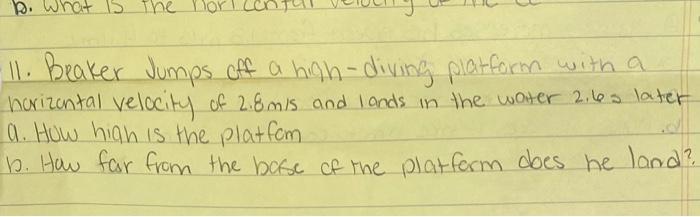 b. What is the horizontal velocity of the
11. Beaker Jumps off a high-diving platform with a
horizontal velocity of 2.8m/s and lands in the water 2.6s later
a. How high is the platfom
b. How far from the base of the platform does he land?